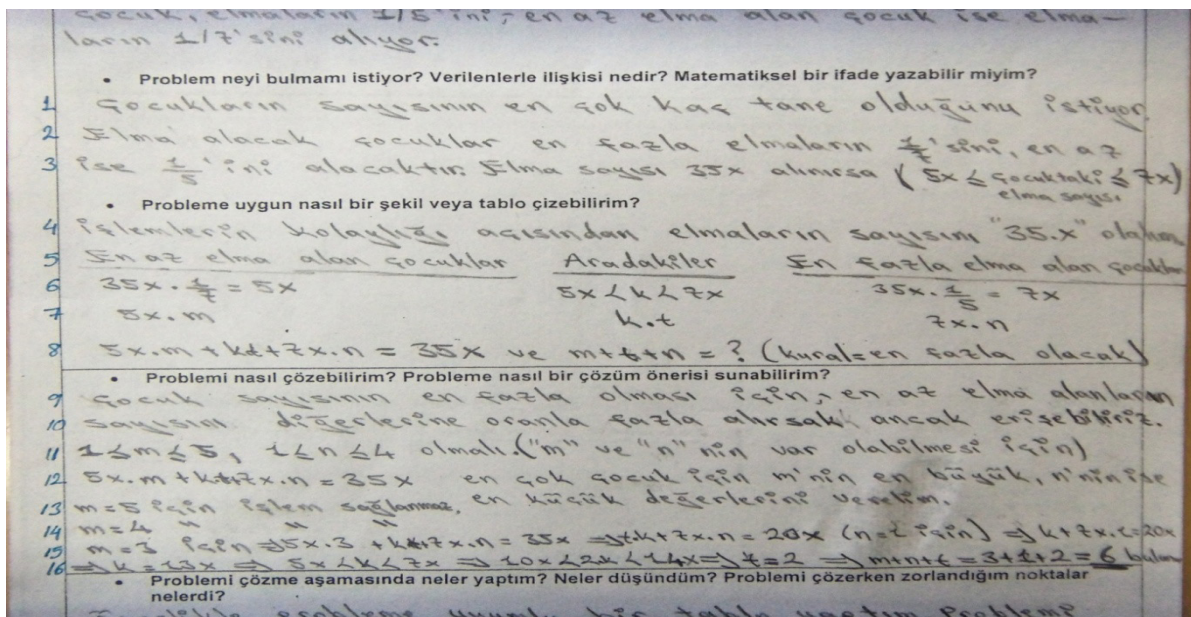 çocuk, elmaların 1/5'ini, en az elma alan çocuk ise elma-
ların 1/7'sini alıyor.
• Problem neyi bulmamı istiyor? Verilenlerle ilişkisi nedir? Matematiksel bir ifade yazabilir miyim?
1 Çocukların sayısının en çok kaç tane olduğunu istiyor.
2 Elma alacak çocuklar en fazla elmaların 1/7'sini, en az
3 ise 1/5'ini alacaktır. Elma sayısı 35x alınırsa (5x ≤ çocuktaki elma sayısı ≤ 7x)
• Probleme uygun nasıl bir şekil veya tablo çizebilirim?
4 işlemlerin kolaylığı açısından elmaların sayısını "35.x" olalım
5 En az elma alan çocuklar Aradakiler En fazla elma alan çocuklar
6 35x.1/7 = 5x 5x<k<7x 35x.1/5 = 7x
7 5x.m k.t 7x.n
8 5x.m + k.t + 7x.n = 35x ve m+t+n = ? (kural=en fazla olacak)
• Problemi nasıl çözebilirim? Probleme nasıl bir çözüm önerisi sunabilirim?
9 Çocuk sayısının en fazla olması için, en az elma alanların
10 sayısını diğerlerine oranla fazla alırsak ancak erişebiliriz.
11 1≤m≤5, 1≤n≤4 olmalı.("m" ve "n" nin var olabilmesi için)
12 5x.m + k.t+7x.n = 35x en çok çocuk için m'nin en büyük, n'nin ise
13 m=5 için işlem sağlanmaz, en küçük değerlerini verelim.
14 m=4 " " "
15 m=3 için ⇒ 5x.3 + k.t+7x.n = 35x ⇒ t.k+7x.n = 20x (n=1 için) ⇒ k+7x.1=20x
16 ⇒ k=13x ⇒ 5x<k<7x ⇒ 10x<2k<14x ⇒ t=2 ⇒ m+n+t = 3+1+2 = 6
• Problemi çözme aşamasında neler yaptım? Neler düşündüm? Problemi çözerken zorlandığım noktalar
nelerdi?
probleme uygun bir tablo yaptım. Problemi